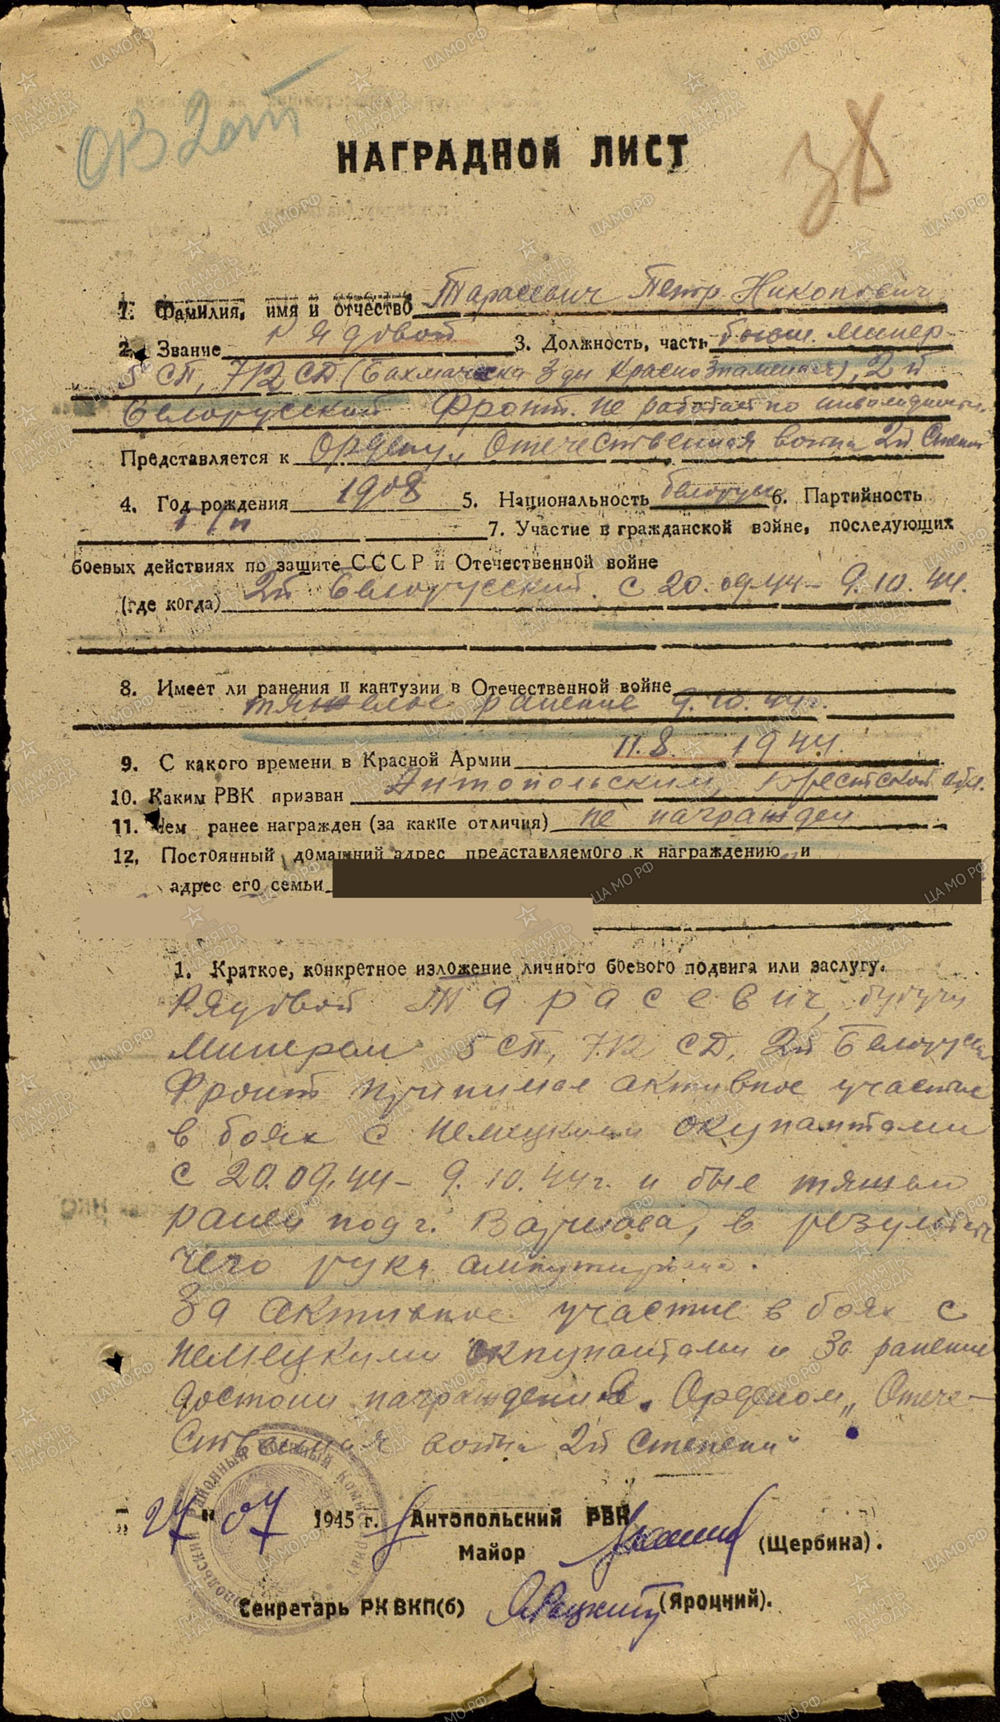 ОВ 2 ст
38
НАГРАДНОЙ ЛИСТ
1. Фамилия, имя и отчество Тарасевич Петр
2. Звание Рядовой 3. Должность, часть бывш. минер
5 СП, 712 СД ( Краснознаменная), 2й
Белорусский Фронт. не работает по инвалидности
Представляется к Ордену „Отечественная война 2й Степени
4. Год рождения 1908 5. Национальность белорус 6. Партийность
б/п 7. Участие в гражданской войне, последующих
боевых действиях по защите СССР и Отечественной войне
(где когда) 2й Белорусский. с 20.09.44 – 9.10.44.
8. Имеет ли ранения и кантузии в Отечественной войне
тяжелое ранение 9.10.44г.
9. С какого времени в Красной Армии 11.8. 1944.
10. Каким РВК призван Антопольским, Брестской обл.
11. Чем ранее награжден (за какие отличия) не награжден
12. Постоянный домашний адрес представляемого к награждению и
адрес его семьи
1. Краткое, конкретное изложение личного боевого подвига или заслуг.
Рядовой Тарасевич, будучи
минером 5 СП, 712 СД, 2й Белорусск
Фронт принимал активное участие
в боях с немецкими окупантами
с 20.09.44 – 9.10.44г. и был тяжело
ранен под г. Варшава, в результате
чего рука ампутирована.
За активное участие в боях с
немецкими окпупантами и за ранение
достоин награждения. Орденом „Отече-
ственная война 2й Степени“
„27“ 07 1945 г. Антопольский РВК
Майор (Щербина).
Секретарь РК ВКП(б) Яроцкий (Яроцкий).